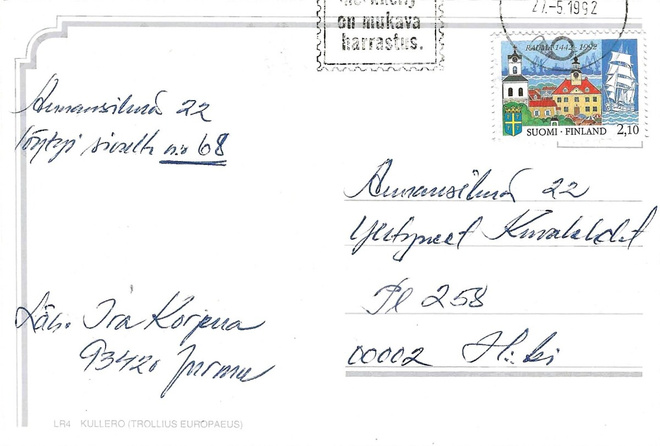 on mukava
harrastus.
27.-5.1992
RAUMA 1442-1992
SUOMI · FINLAND 2,10
Ammansilmä 22
löytyi sivulta n:o 68
Ammansilmä 22
Yhtyneet Kuvalehdet
Pl 258
00002 H:ki
Läh. Ira Korpua
93420 Jurmu
LR4 KULLERO (TROLLIUS EUROPAEUS)